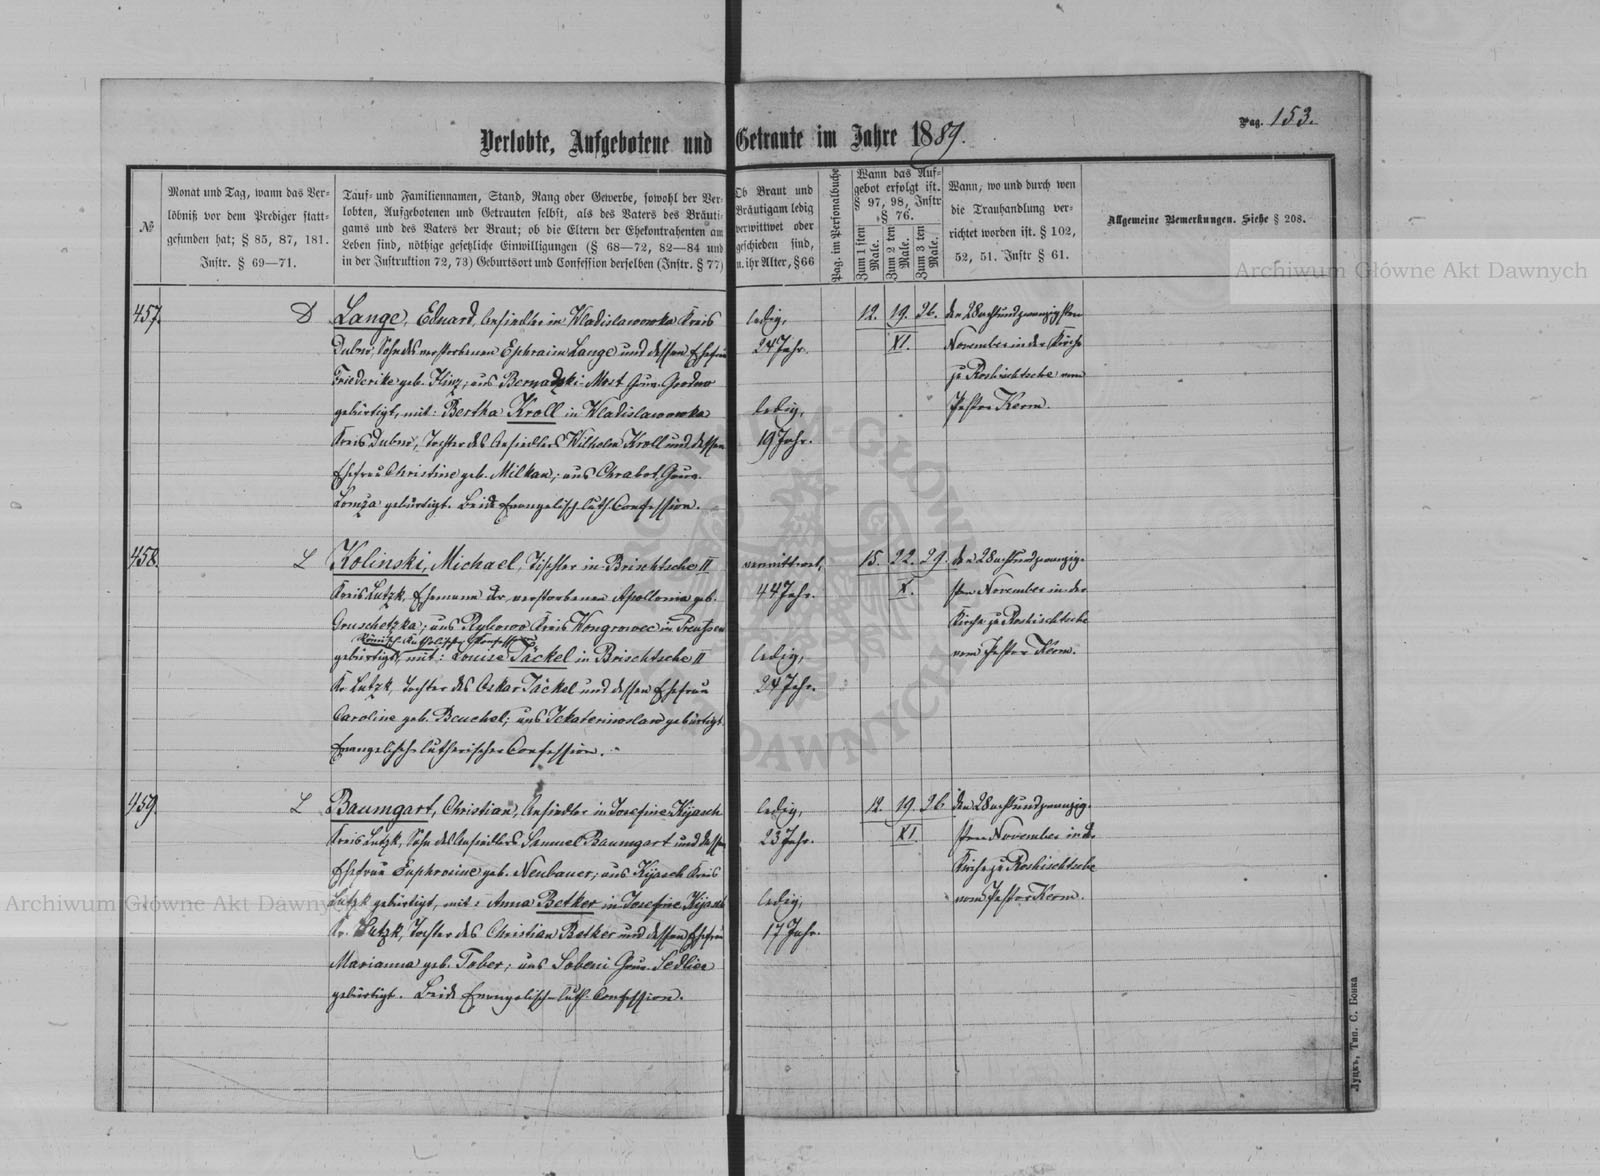 Pag. 153.
Verlobte, Aufgebotene und Getraute im Jahre 1889.
№
Monat und Tag, wann das Ver-
löbniß vor dem Prediger statt-
gefunden hat; § 85, 87, 181.
Instr. § 69—71.
Tauf- und Familiennamen, Stand, Rang oder Gewerbe, sowohl der Ver-
lobten, Aufgebotenen und Getrauten selbst, als des Vaters des Bräuti-
gams und des Vaters der Braut; ob die Eltern der Ehekontrahenten am
Leben sind, nöthige gesetzliche Einwilligungen (§ 68—72, 82—84 und
in der Instruktion 72, 73) Geburtsort und Confession derselben (Instr. § 77)
Ob Braut und
Bräutigam ledig
verwittwet oder
geschieden sind,
u. ihr Alter, § 66
Pag. im Personalbuche
Wann das Auf-
gebot erfolgt ist.
§ 97, 98, Instr
§ 76.
Zum 1 sten Male.
Zum 2 ten Male.
Zum 3 ten Male.
Wann, wo und durch wen
die Trauhandlung ver-
richtet worden ist. § 102,
52, 51. Instr § 61.
Allgemeine Bemerkungen. Siehe § 208.
457.
D
Lange, Eduard, Ansiedler in Wladislawowka Kreis
Dubno, Sohn des verstorbenen Ephraim Lange und dessen Ehefrau
Friederike geb. Hinz; aus Bernadzki-Most Gouv. Grodno
gebürtigt, mit: Bertha Kroll in Wladislawowka
Kreis Dubno, Tochter des Ansiedlers Wilhelm Kroll und dessen
Ehefrau Christine geb. Milkau; aus Chrabot, Gouv.
Lomża gebürtigt. Beide Evangelisch-luth. Confession.
ledig,
24 Jahr.
ledig,
19 Jahr.
12. 19. 26.
XI.
den 28 achtundzwanzigsten
November in der Kirche
zu Roshischtsche vom
Pastor Kerm.
458.
L
Kolinski, Michael, Tischler in Brischtsche II
Kreis Lutzk, Ehemann der verstorbenen Apollonia geb.
Gruschetzka; aus Rybowo Kreis Wongrowec in Preußen
Römisch-Katholischer Confession
gebürtigt, mit: Louise Täckel in Brischtsche II
Kr. Lutzk, Tochter des Oskar Täckel und dessen Ehefrau
Caroline geb. Beuchel; aus Jekaterinoslaw gebürtigt
Evangelisch-lutherischer Confession.
verwittwet,
44 Jahr.
ledig,
24 Jahr.
15. 22. 29.
X.
den 28 achtundzwanzig-
sten November in der
Kirche zu Roshischtsche
vom Pastor Kerm.
459.
L
Baumgart, Christian, Ansiedler in Josefine Kijasch
Kreis Lutzk, Sohn des Ansiedlers Samuel Baumgart und dessen
Ehefrau Euphrosine geb. Neubauer; aus Kijasch Kreis
Lutzk gebürtigt, mit: Anna Betker in Josefine Kijasch
Kr. Lutzk, Tochter des Christian Betker und dessen Ehefrau
Marianna geb. Tober; aus Sobeni Gouv. Sedlice
gebürtigt. Beide Evangelisch-luth. Confession.
ledig,
23 Jahr.
ledig,
17 Jahr.
12. 19. 26
XI.
den 28 achtundzwanzig-
sten November in der
Kirche zu Roshischtsche
vom Pastor Kerm.
Луцкъ, Тип. С. Бонка
Archiwum Główne Akt Dawnych
Archiwum Główne Akt Dawnych